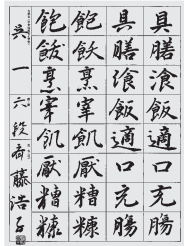 具膳湌飯適口充腸
具膳飡飯適口充腸
飽飫烹宰飢厭糟糠
飽飫烹宰飢厭糟糠
呉一 六段 斉藤浩子